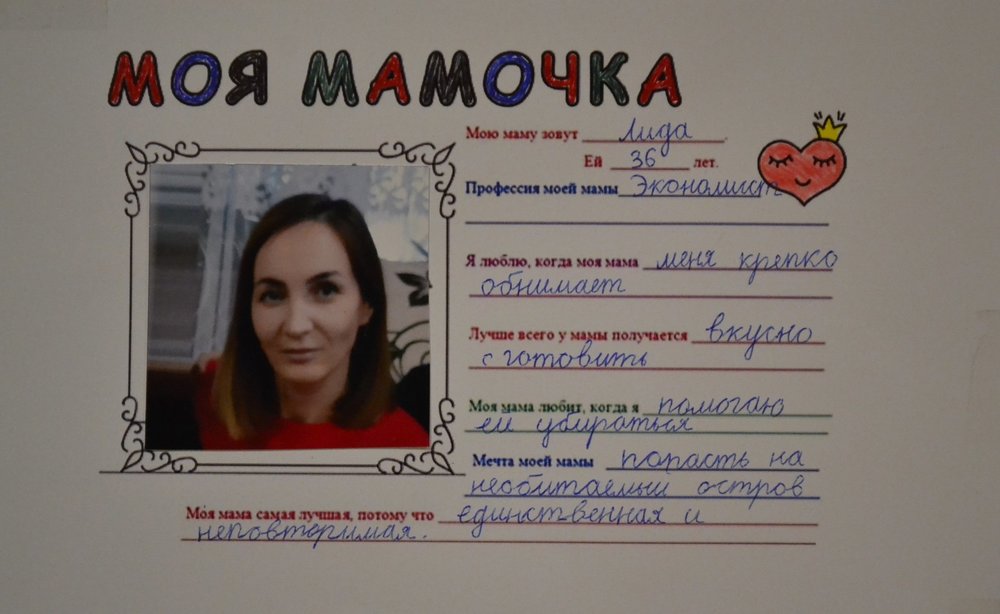 МОЯ МАМОЧКА
Мою маму зовут Лида.
Ей 36 лет.
Профессия моей мамы Экономист
Я люблю, когда моя мама меня крепко
обнимает
Лучше всего у мамы получается вкусно
сготовить
Моя мама любит, когда я помогаю
ей убираться
Мечта моей мамы попасть на
необитаемый остров
Моя мама самая лучшая, потому что единственная и
неповторимая.